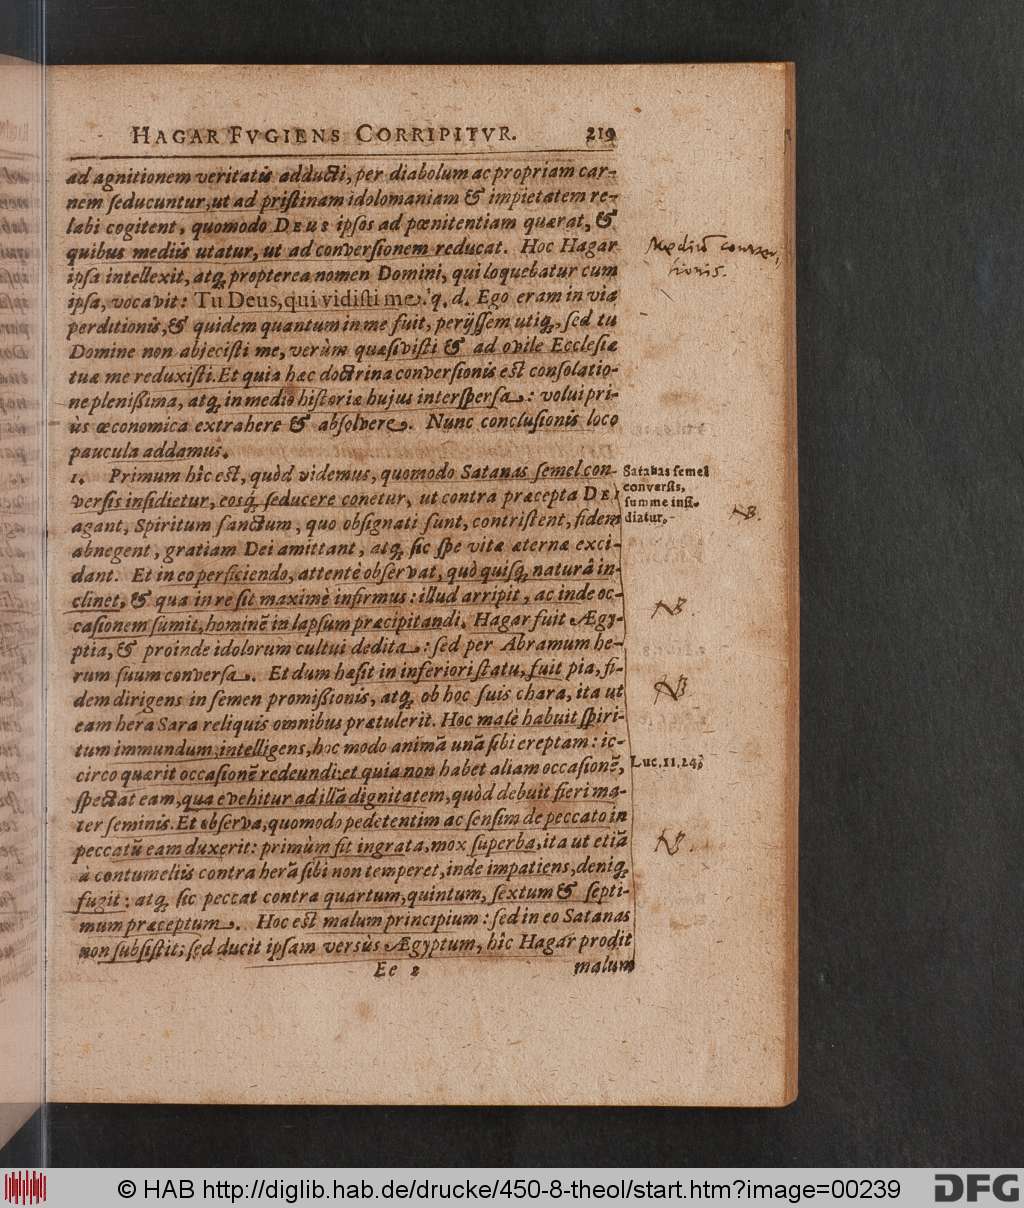 HAGAR FVGIENS CORRIPITVR. 219
ad agnitionem veritatis adducti, per diabolum ac propriam car-
nem seducuntur, ut ad pristinam idolomaniam & impietatem re-
labi cogitent, quomodo DEUS ipsos ad pœnitentiam quærat, &
quibus mediis utatur, ut ad conversionem reducat. Hoc Hagar
ipsa intellexit, atq; propterea nomen Domini, qui loquebatur cum
ipsa, vocavit: Tu Deus, qui vidisti me. q. d. Ego eram in via
perditionis, & quidem quantum in me fuit, perijssem utiq;, sed tu
Domine non abjecisti me, verùm quæsivisti & ad ovile Ecclesiæ
tuæ me reduxisti. Et quia hæc doctrina conversionis est consolatio-
ne plenißima, atq; in medio historiæ hujus interspersa: volui pri-
ùs œconomica extrahere & absolvere. Nunc conclusionis loco
paucula addamus.
1. Primum hîc est, quòd videmus, quomodo Satanas semel con-
versis insidietur, eosq; seducere conetur, ut contra præcepta DEI
agant, Spiritum sanctum, quo obsignati sunt, contristent, fidem
abnegent, gratiam Dei amittant, atq; sic spe vitæ æternæ exci-
dant. Et in eo perficiendo, attentè observat, quò quisq; naturâ in-
clinet, & qua in re sit maximè infirmus: illud arripit, ac inde oc-
casionem sumit, hominē in lapsum præcipitandi. Hagar fuit Ægy-
ptia, & proinde idolorum cultui dedita: sed per Abramum he-
rum suum conversa. Et dum hæsit in inferiori statu, fuit pia, fi-
dem dirigens in semen promißionis, atq; ob hoc suis chara, ita ut
eam hera Sara reliquis omnibus prætulerit. Hoc malè habuit spiri-
tum immundum, intelligens, hoc modo animā unā sibi ereptam: ic-
circo quærit occasionē redeundi: et quia non habet aliam occasionē,
spectat eam, qua evehitur ad illā dignitatem, quòd debuit fieri ma-
ter seminis. Et observa, quomodo pedetentim ac sensim de peccato in
peccatū eam duxerit: primùm fit ingrata, mox superba, ita ut etiā
à contumeliis contra herā sibi non temperet, inde impatiens, deniq;
fugit: atq; sic peccat contra quartum, quintum, sextum & septi-
mum præceptum. Hoc est malum principium: sed in eo Satanas
non subsistit; sed ducit ipsam versùs Ægyptum, hîc Hagar prodit
Ee 2 malum
Mediū conver,
sionis.
Satanas semel
conversis,
summe insi-
diatur.
NB.
NB.
NB.
Luc. 11. 24.
NB.
© HAB http://diglib.hab.de/drucke/450-8-theol/start.htm?image=00239
DFG